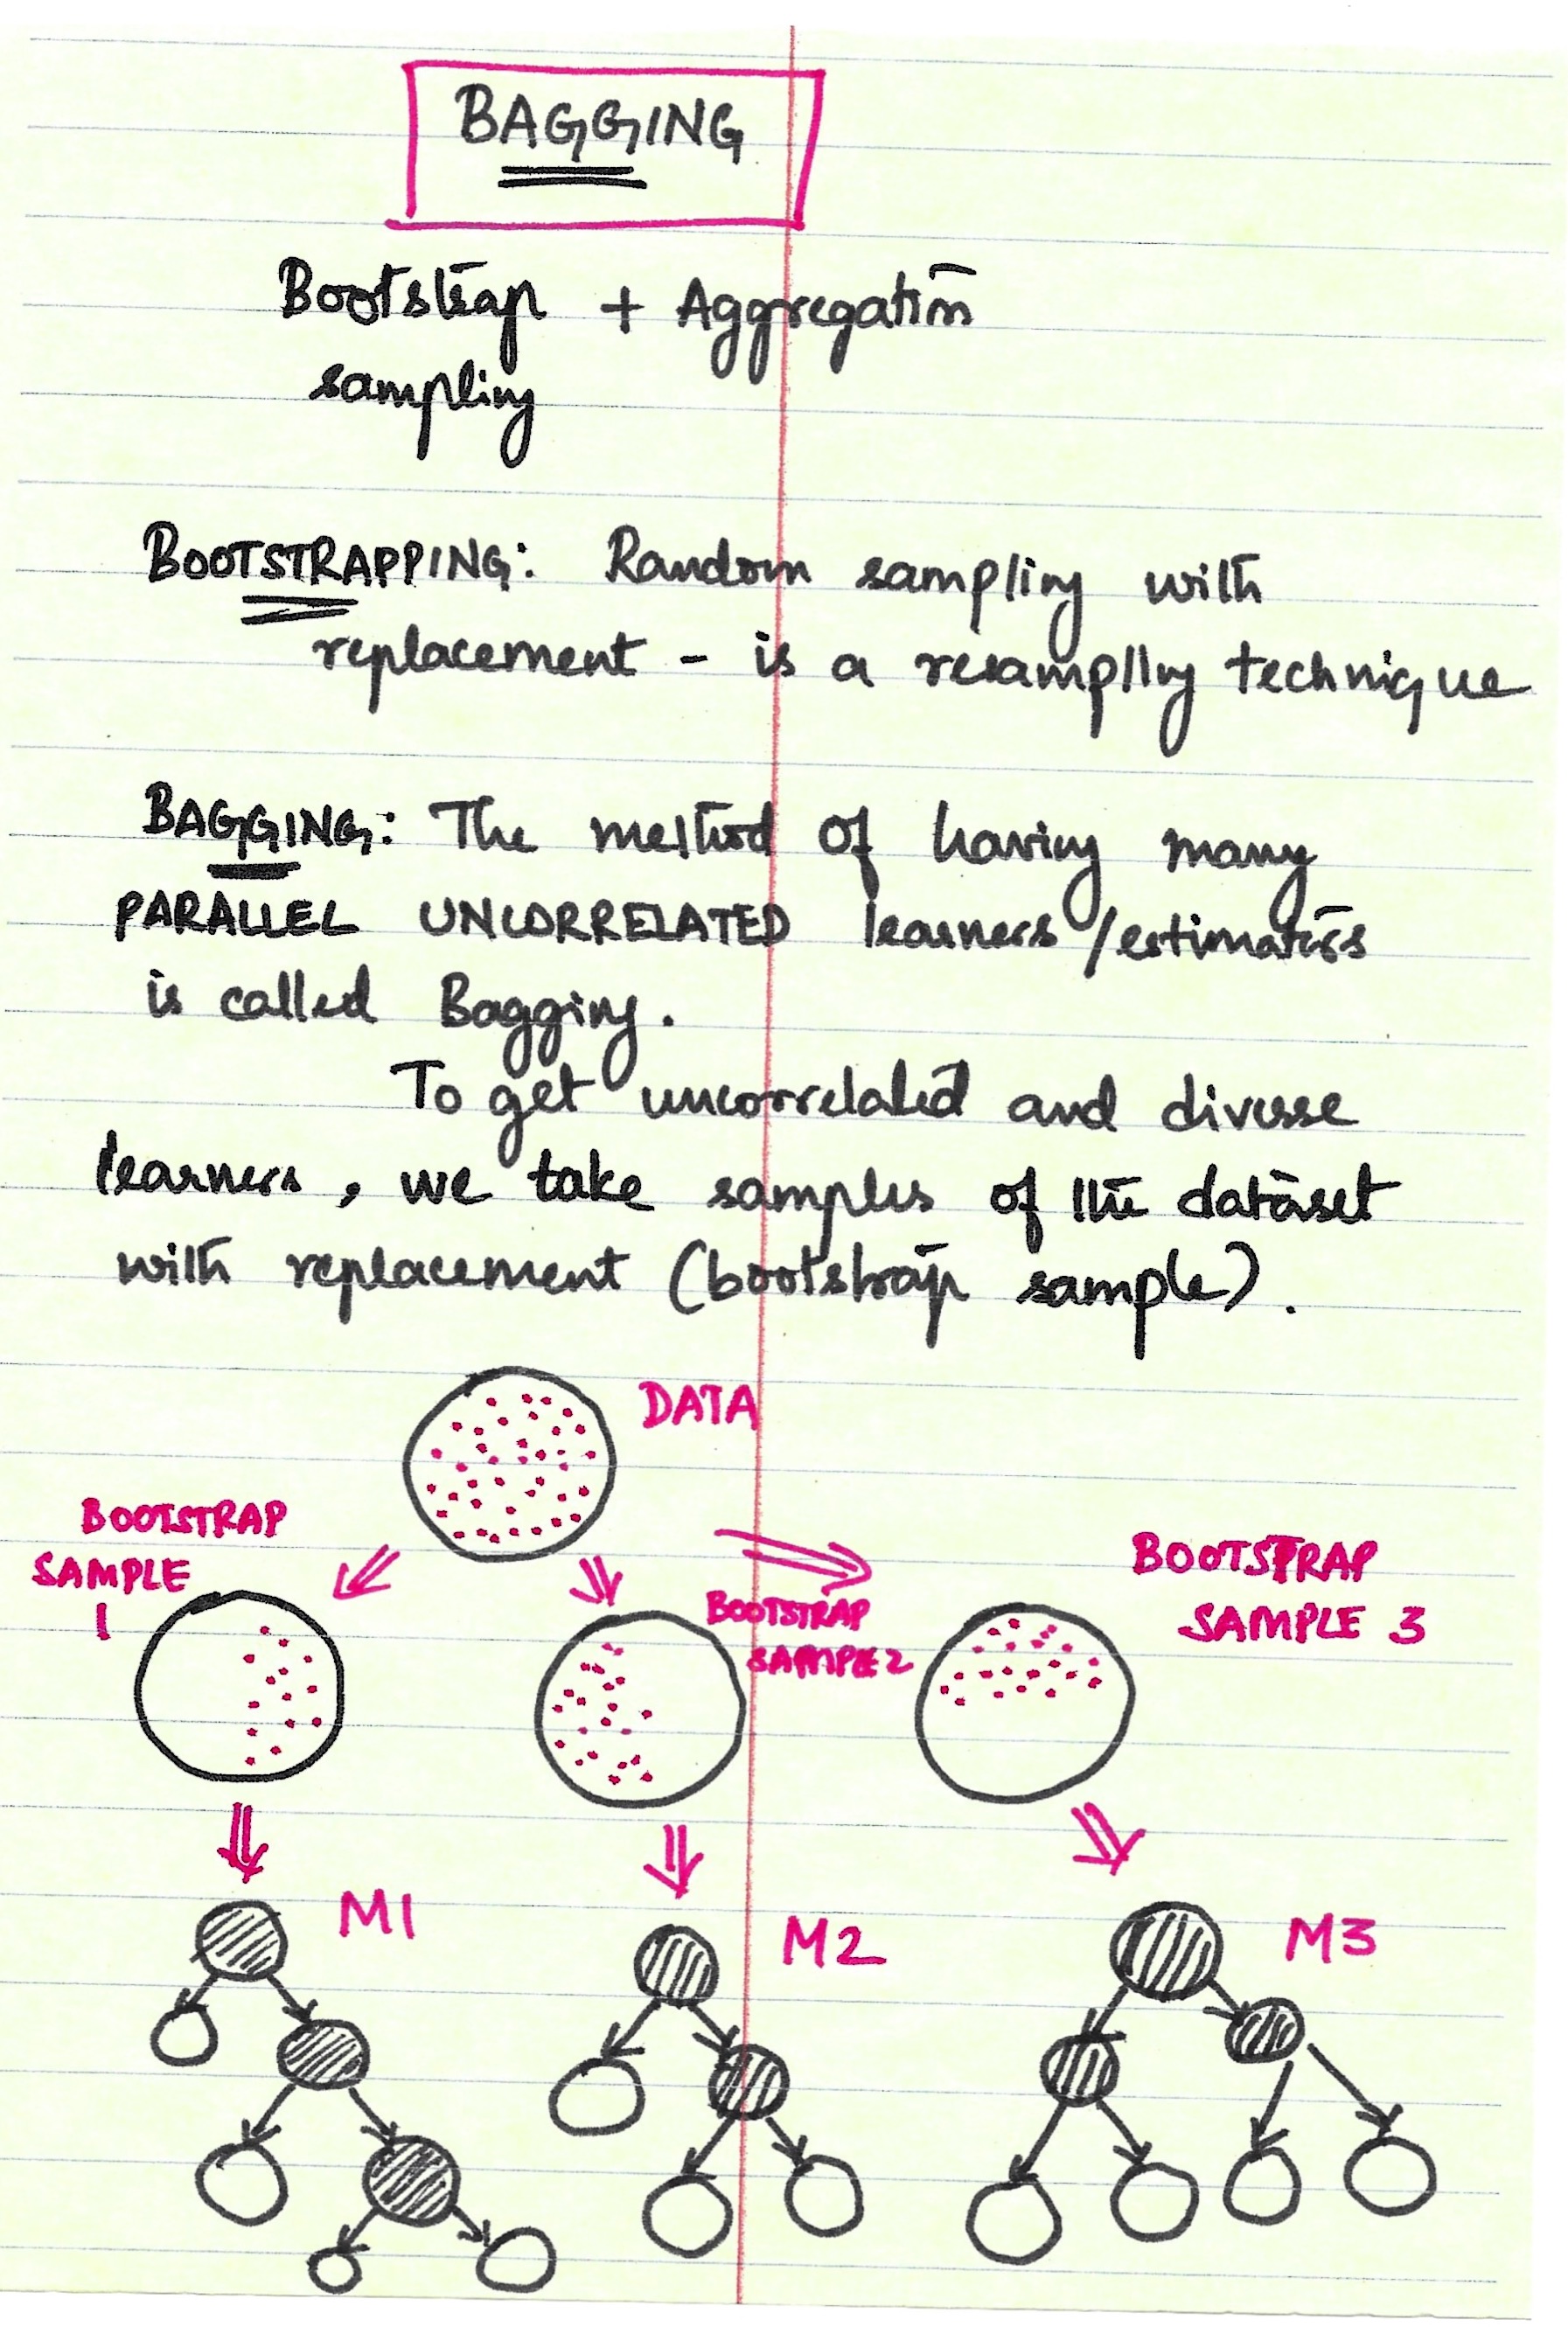 BAGGING
Bootstrap + Aggregation
sampling
BOOTSTRAPPING: Random sampling with
replacement - is a resampling technique
BAGGING: The method of having many
PARALLEL UNCORRELATED learners/estimators
is called Bagging.
To get uncorrelated and diverse
learners, we take samples of the dataset
with replacement (bootstrap sample).
DATA
BOOTSTRAP
SAMPLE
1
BOOTSTRAP
SAMPLE 2
BOOTSTRAP
SAMPLE 3
M1
M2
M3